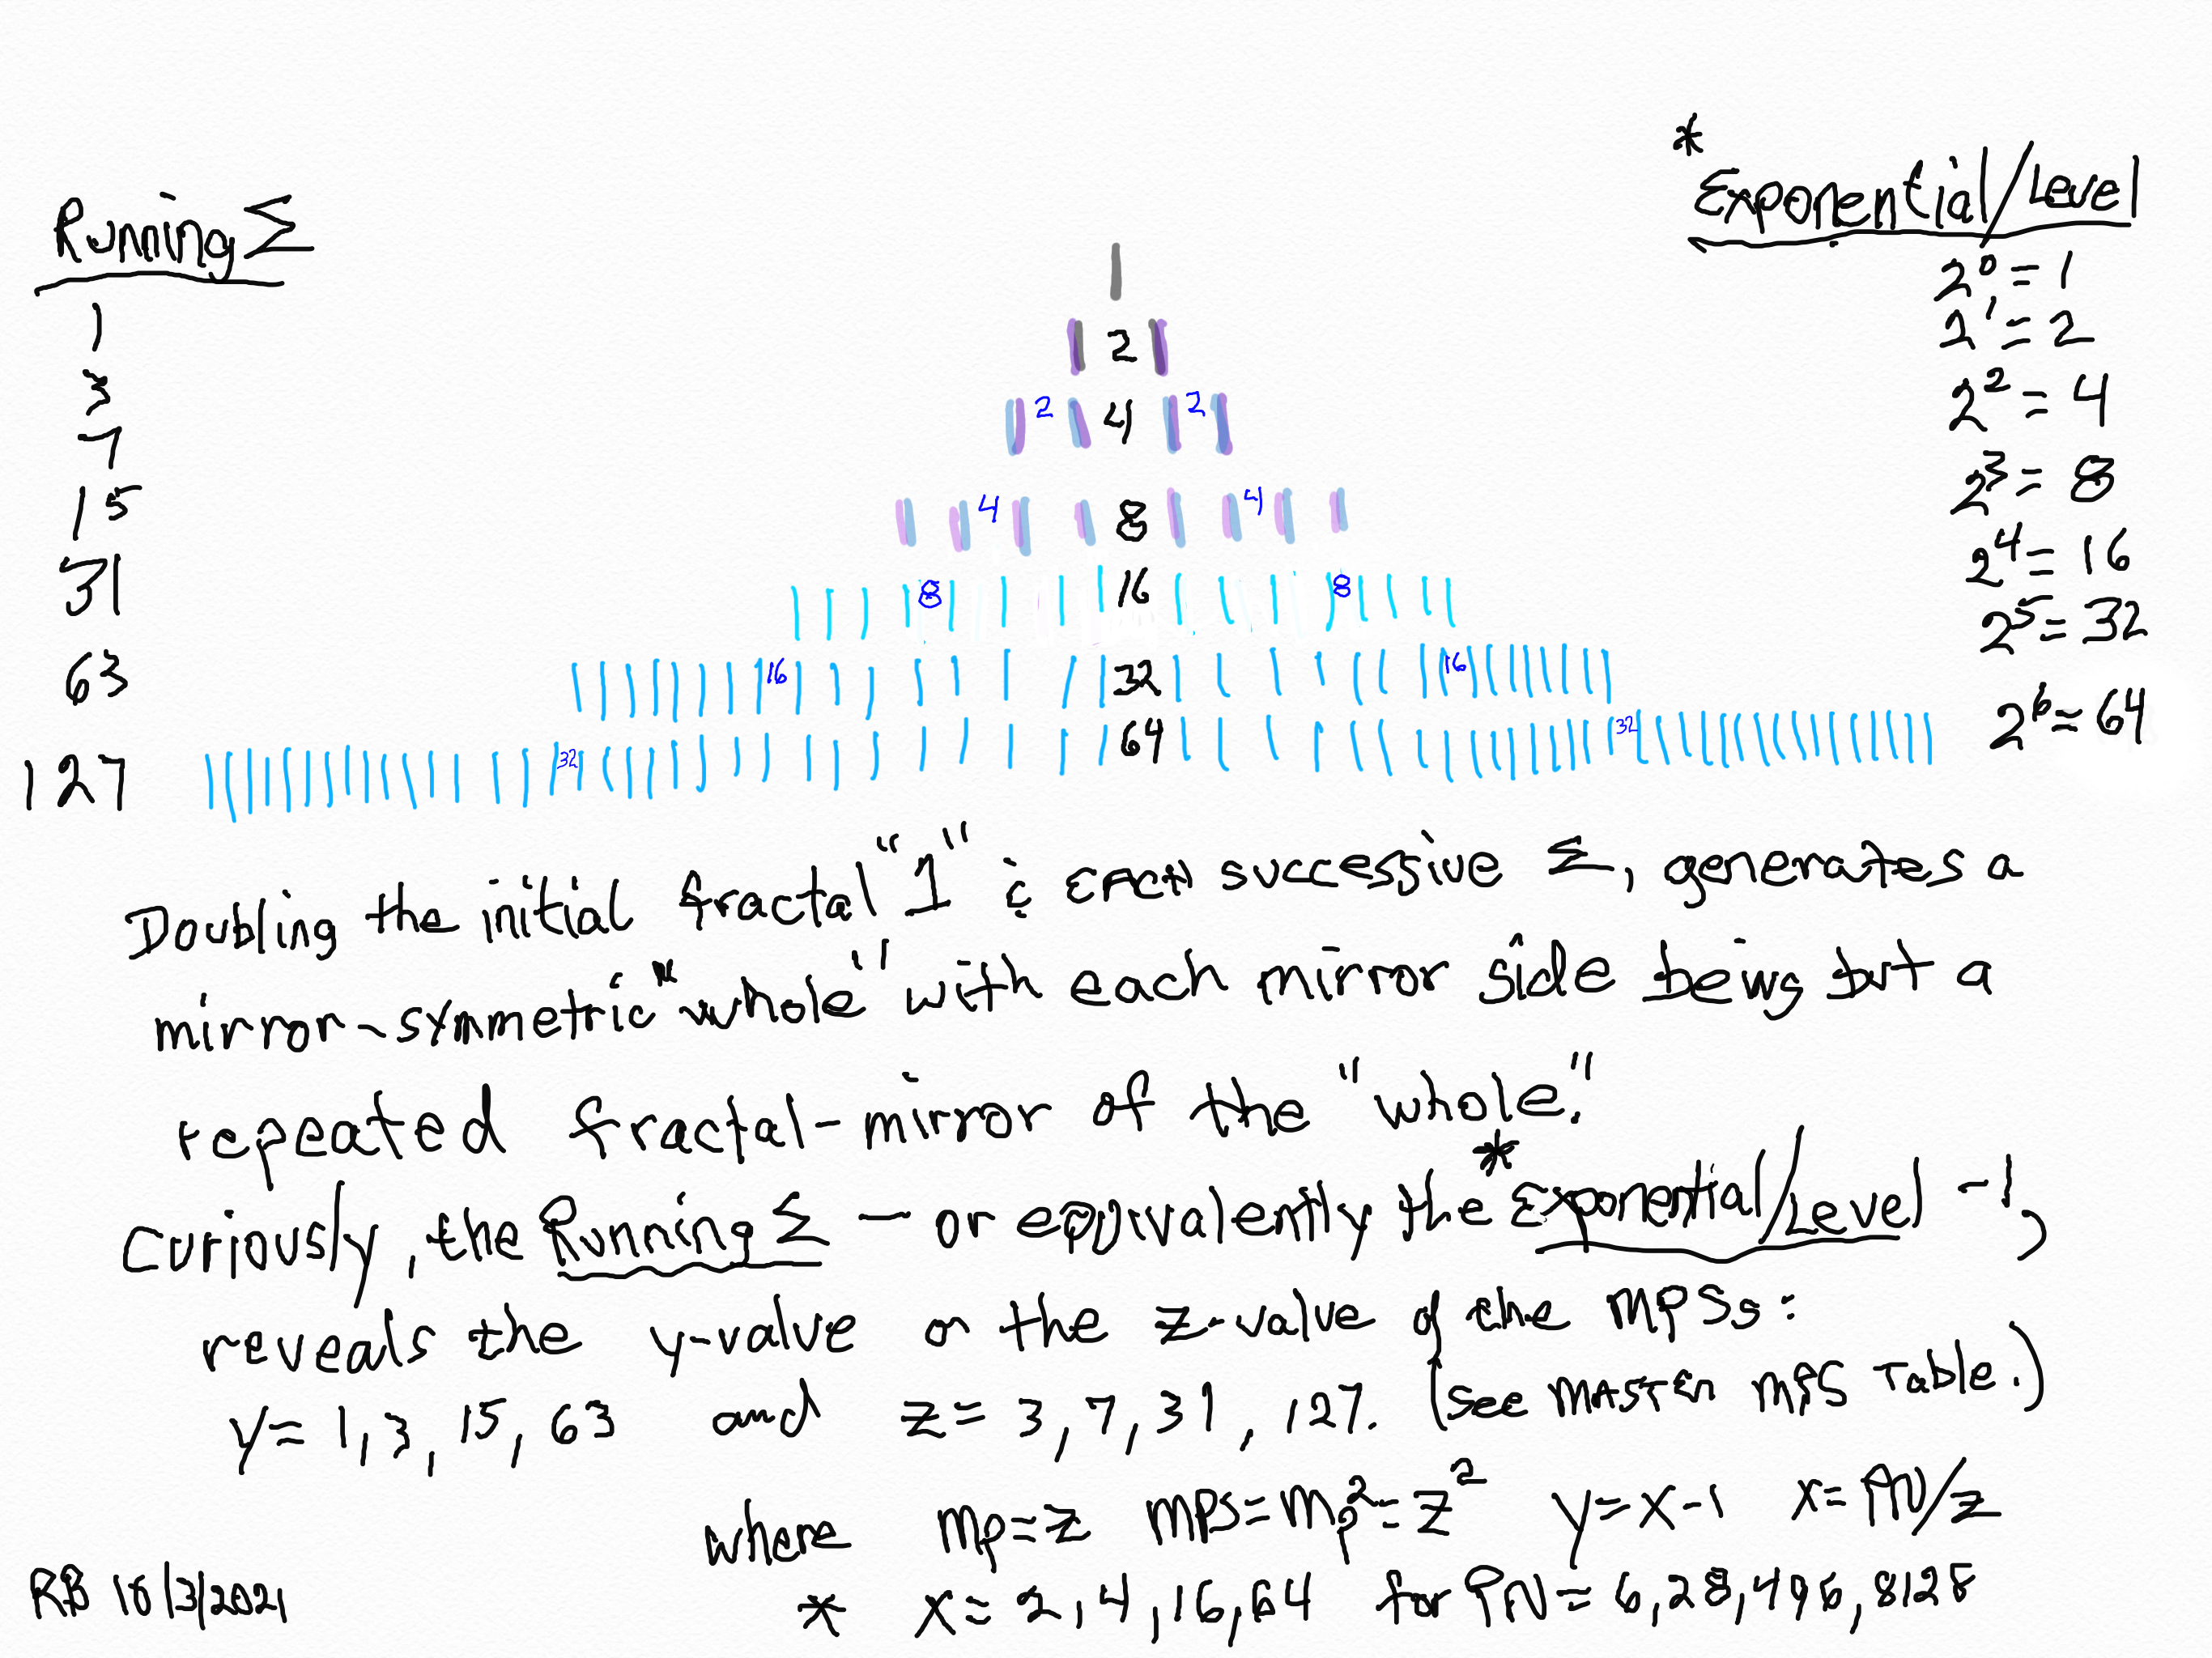 Running Σ
* Exponential/Level
1
3
7
15
31
63
127
2
2 4 2
4 8 4
8 16 8
16 32 16
32 64 32
2⁰=1
2¹=2
2²=4
2³=8
2⁴=16
2⁵=32
2⁶=64
Doubling the initial fractal "1" & EACH successive Σ, generates a
mirror-symmetric "whole" with each mirror side being but a
repeated fractal-mirror of the "whole."
Curiously, the Running Σ — or equivalently the *Exponential/Level -1,
reveals the y-value or the z-value of the MPSs:
y= 1, 3, 15, 63 and z= 3, 7, 31, 127. (See MASTER MPS Table.)
where Mp=z MPS=Mp²=z² y=x-1 x=PN/z
RB 10/3/2021
* x= 2, 4, 16, 64 for PN= 6, 28, 496, 8128